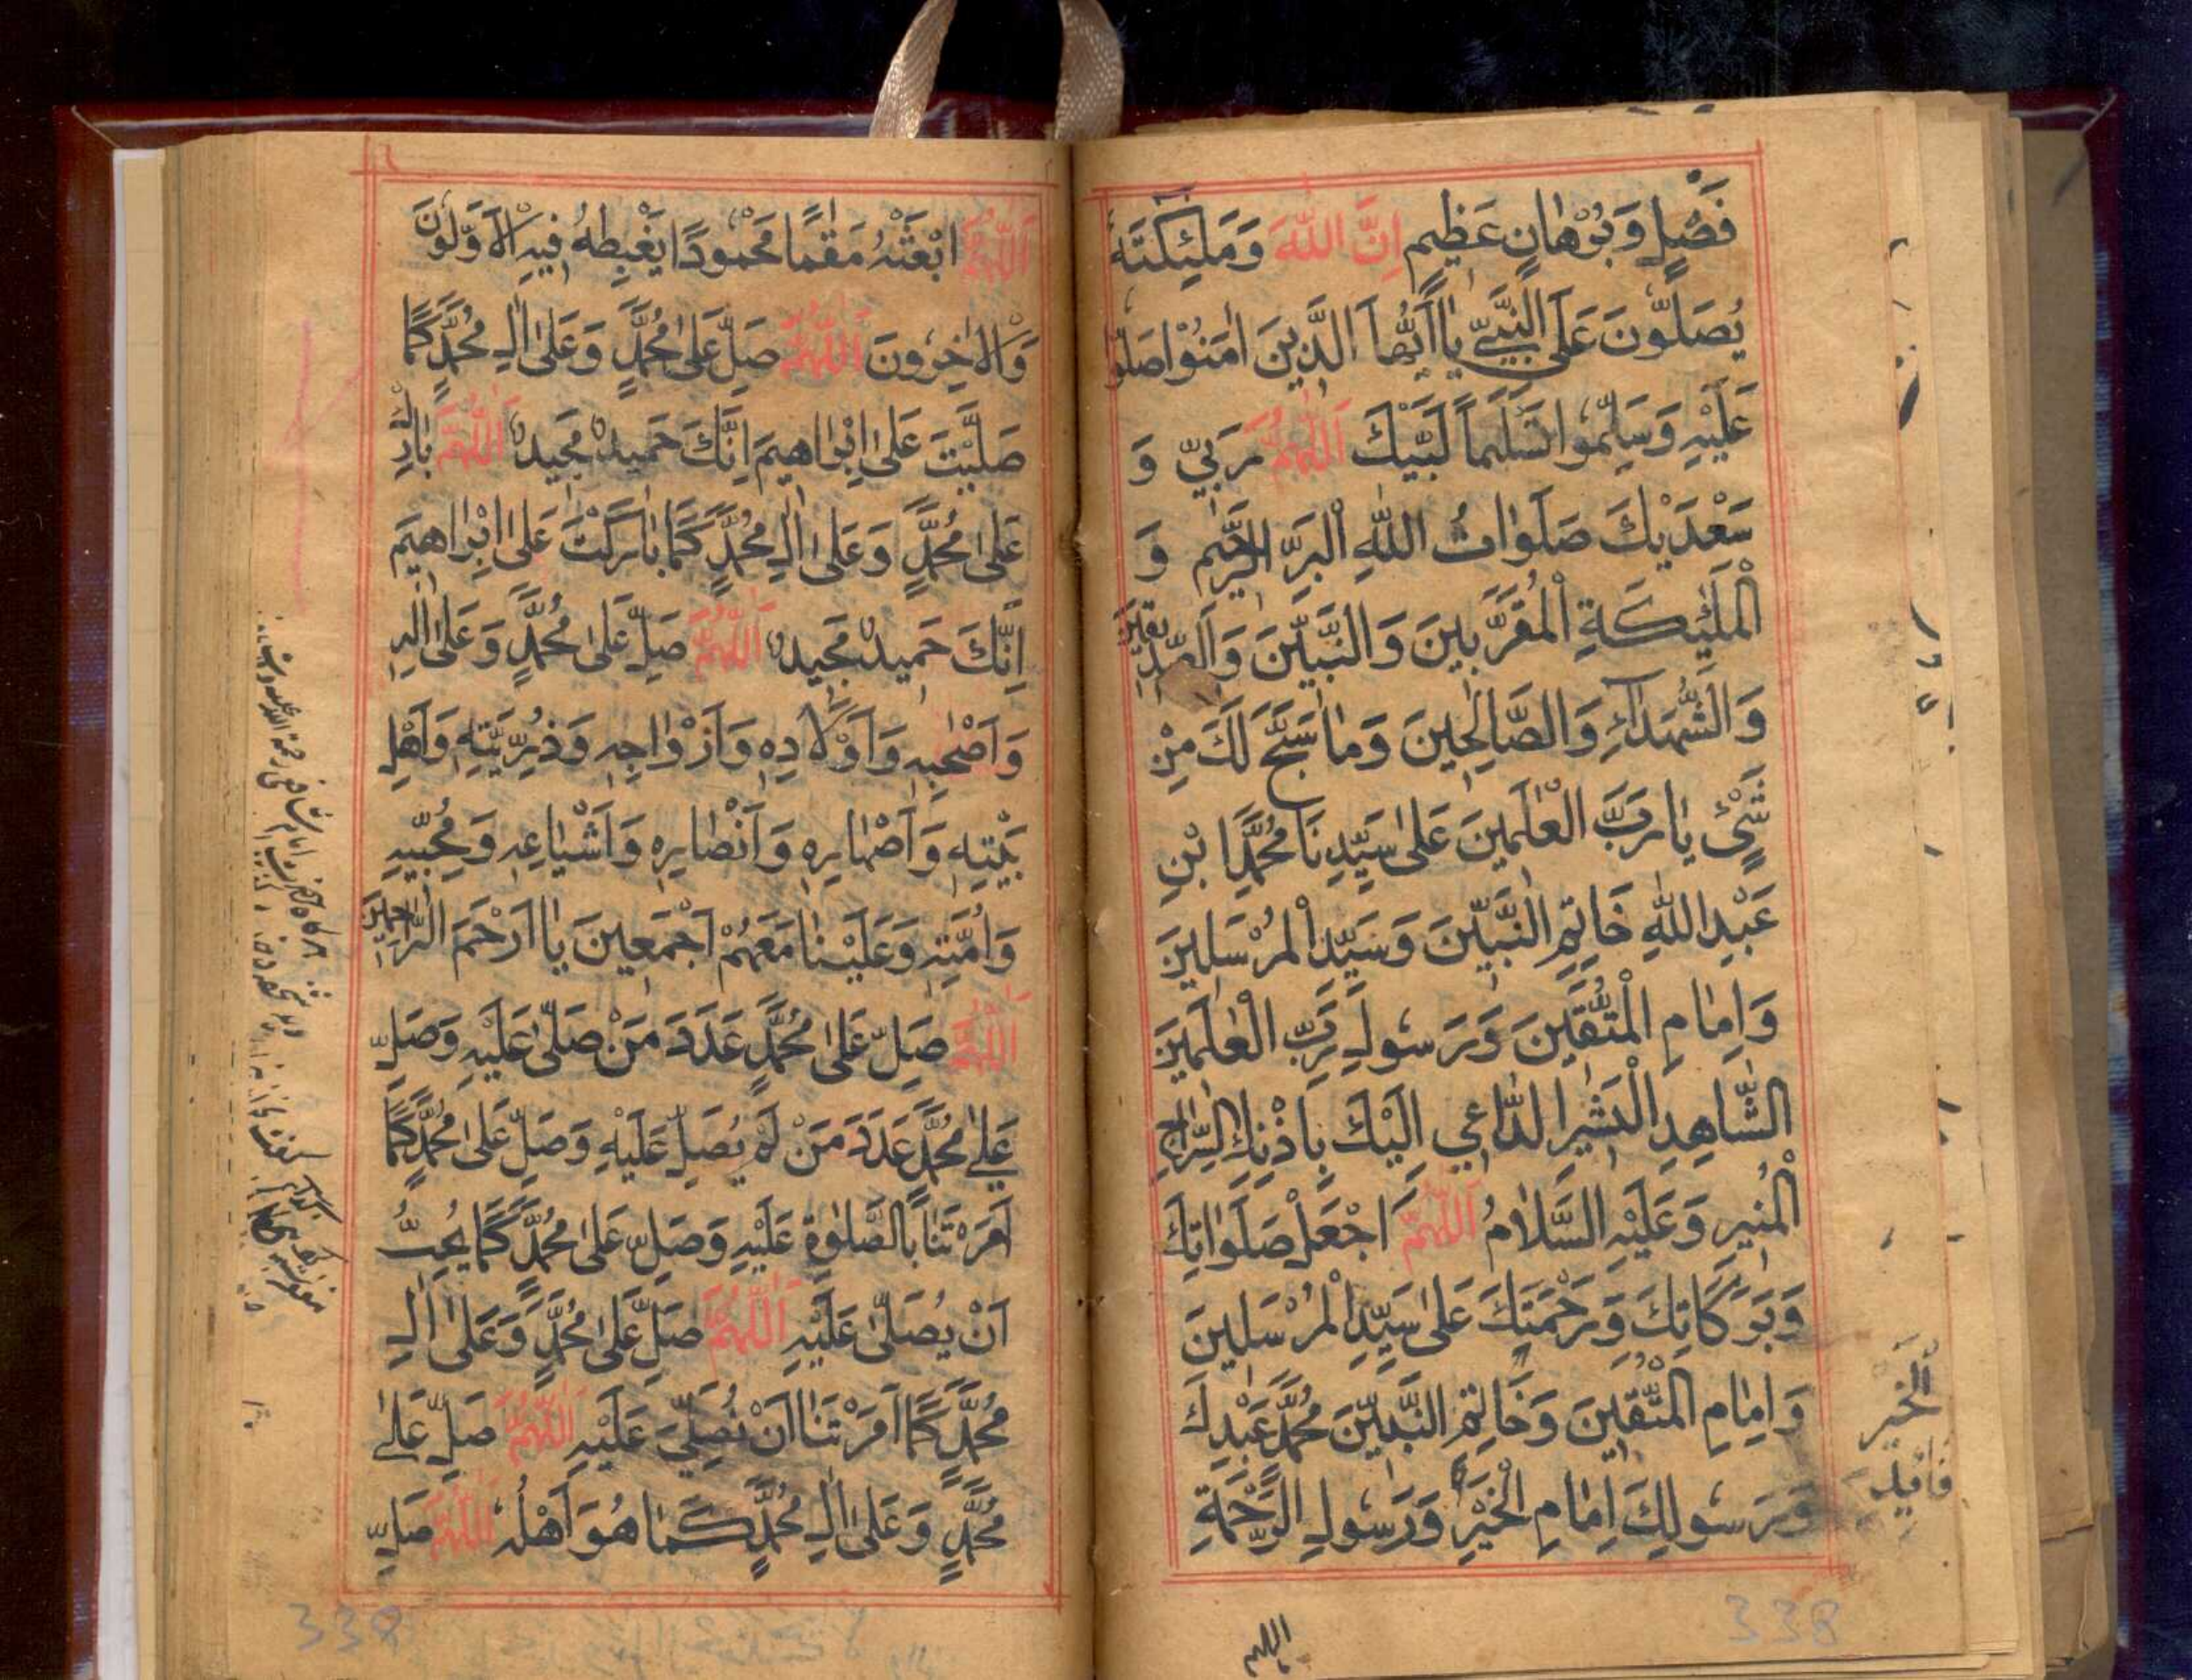 فَصْلٍ وَبُرْهَانٍ عَظِيمٍ اِنَّ اللّٰهَ وَمَلٰئِكَتَهُ
يُصَلُّونَ عَلَى النَّبِيِّ يَا اَيُّهَا الَّذِينَ اٰمَنُوْا صَلُّوا
عَلَيْهِ وَسَلِّمُوا تَسْلِيمًا لَبَّيْكَ اَللّٰهُمَّ رَبِّي وَ
سَعْدَيْكَ صَلَوَاتُ اللّٰهِ الْبَرِّ الرَّحِيمِ وَ
الْمَلٰئِكَةِ الْمُقَرَّبِينَ وَالنَّبِيِّينَ وَالصِّدِّيقِينَ
وَالشُّهَدَآءِ وَالصَّالِحِينَ وَمَا سَبَّحَ لَكَ مِنْ
شَيْءٍ يَا رَبَّ الْعٰلَمِينَ عَلٰى سَيِّدِنَا مُحَمَّدٍ ابْنِ
عَبْدِ اللّٰهِ خَاتِمِ النَّبِيِّينَ وَسَيِّدِ الْمُرْسَلِينَ
وَاِمَامِ الْمُتَّقِينَ وَرَسُولِ رَبِّ الْعٰلَمِينَ
الشَّاهِدِ الْبَشِيرِ الدَّاعِي اِلَيْكَ بِاِذْنِكَ السِّرَاجِ
الْمُنِيرِ وَعَلَيْهِ السَّلَامُ اَللّٰهُمَّ اجْعَلْ صَلَوَاتِكَ
وَبَرَكَاتِكَ وَرَحْمَتَكَ عَلٰى سَيِّدِ الْمُرْسَلِينَ
وَاِمَامِ الْمُتَّقِينَ وَخَاتِمِ النَّبِيِّينَ مُحَمَّدٍ عَبْدِكَ
وَرَسُولِكَ اِمَامِ الْخَيْرِ وَرَسُولِ الرَّحْمَةِ
الْخَيْرِ
338
اللهم
اَللّٰهُمَّ ابْعَثْهُ مَقٰمًا مَحْمُودًا يَغْبِطُهُ فِيهِ الْاَوَّلُونَ
وَالْاٰخِرُونَ اَللّٰهُمَّ صَلِّ عَلٰى مُحَمَّدٍ وَعَلٰى اٰلِ مُحَمَّدٍ كَمَا
صَلَّيْتَ عَلٰى اِبْرَاهِيمَ اِنَّكَ حَمِيدٌ مَجِيدٌ اَللّٰهُمَّ بَارِكْ
عَلٰى مُحَمَّدٍ وَعَلٰى اٰلِ مُحَمَّدٍ كَمَا بَارَكْتَ عَلٰى اِبْرَاهِيمَ
اِنَّكَ حَمِيدٌ مَجِيدٌ اَللّٰهُمَّ صَلِّ عَلٰى مُحَمَّدٍ وَعَلٰى اٰلِهِ
وَاَصْحٰبِهِ وَاَوْلَادِهِ وَاَزْوَاجِهِ وَذُرِّيَّتِهِ وَاَهْلِ
بَيْتِهِ وَاَصْهَارِهِ وَاَنْصَارِهِ وَاَشْيَاعِهِ وَمُحِبِّيهِ
وَاُمَّتِهِ وَعَلَيْنَا مَعَهُمْ اَجْمَعِينَ يَا اَرْحَمَ الرَّاحِمِينَ
اَللّٰهُمَّ صَلِّ عَلٰى مُحَمَّدٍ عَدَدَ مَنْ صَلّٰى عَلَيْهِ وَصَلِّ
عَلٰى مُحَمَّدٍ عَدَدَ مَنْ لَمْ يُصَلِّ عَلَيْهِ وَصَلِّ عَلٰى مُحَمَّدٍ كَمَا
اَمَرْتَنَا بِالصَّلٰوةِ عَلَيْهِ وَصَلِّ عَلٰى مُحَمَّدٍ كَمَا يُحِبُّ
اَنْ يُصَلّٰى عَلَيْهِ اَللّٰهُمَّ صَلِّ عَلٰى مُحَمَّدٍ وَعَلٰى اٰلِ
مُحَمَّدٍ كَمَا اَمَرْتَنَا اَنْ نُصَلِّيَ عَلَيْهِ اَللّٰهُمَّ صَلِّ عَلٰى
مُحَمَّدٍ وَعَلٰى اٰلِ مُحَمَّدٍ كَمَا هُوَ اَهْلُهُ اَللّٰهُمَّ صَلِّ
339